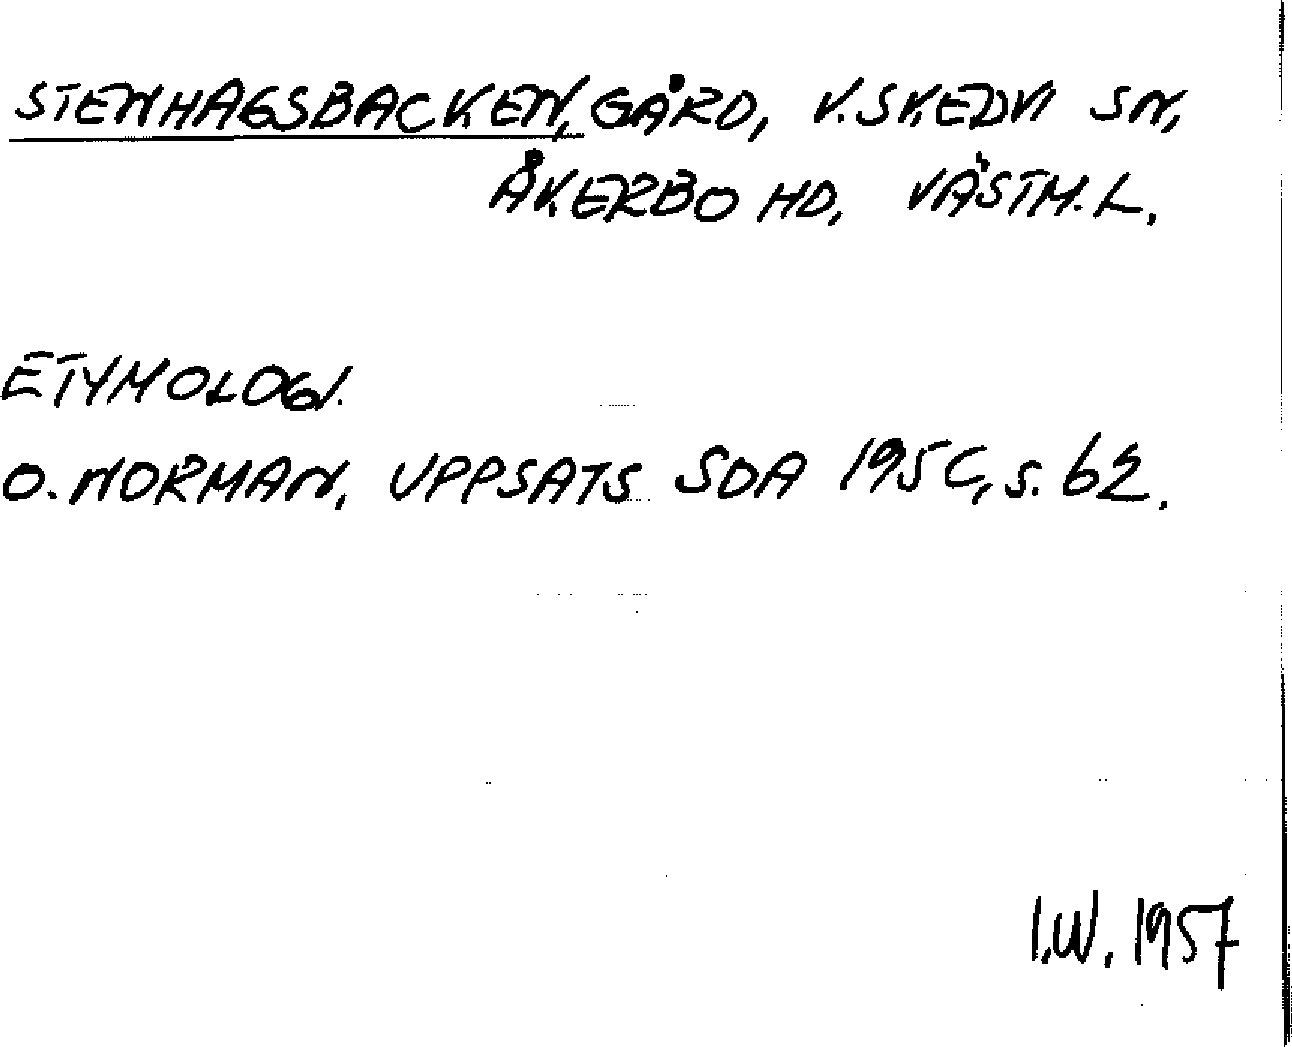 STENHAGSBACKEN, GÅRD, V. SKEDVI SN,
ÅKERBO HD, VÄSTM. L.
ETYMOLOGI.
O. NORMAN, UPPSATS SOA 1950, s. 62.
I.W. 1957